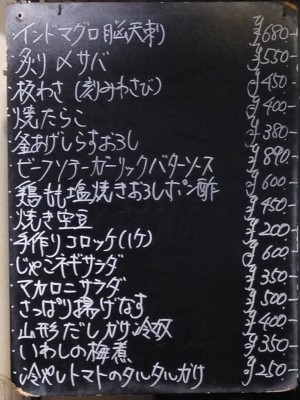 ・インドマグロ脳天刺 ¥680-
・炙り〆サバ ¥550-
・板わさ(刻みわさび) ¥450
・焼たらこ ¥400-
・釜あげしらすおろし ¥380-
・ビーフソテーガーリックバターソース ¥890-
・鶏もも塩焼きおろしポン酢 ¥600-
・焼き空豆 ¥450
・手作りコロッケ(1ケ) ¥200
・じゃこネギサラダ ¥600-
・マカロニサラダ ¥350
・さっぱり揚げなす ¥500-
・山形だしがけ冷奴 ¥400-
・いわしの梅煮 ¥350-
・冷やしトマトのタルタルがけ ¥250-